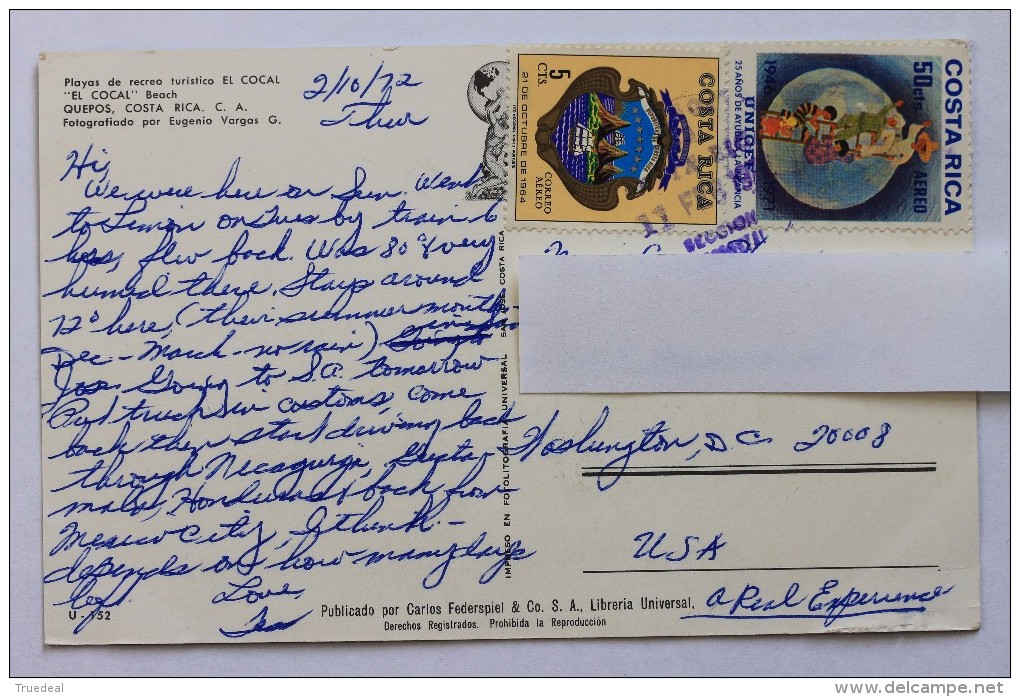 Playas de recreo turístico EL COCAL
"EL COCAL" Beach
QUEPOS, COSTA RICA. C. A.
Fotografiado por Eugenio Vargas G.
2/10/72
Thur
Hi,
We were here on Sun. Went
to Limon on Tues by train 6
hrs, flew back. Was 80° & very
humid there. Stays around
72° here, (their summer months
Dec - March - no rain)
Jose. Going to S.A. tomorrow
Put truck in customs, come
back then start driving back
through Nicaguragi, Guata-
mala, Honduras & back from
Mexico City, I think -
depends on how many days
left
Love,
U - 152
5
CTS.
21 DE OCTUBRE DE 1964
CORREO
AEREO
COSTA RICA
1946
1971
UNICEF
25 AÑOS DE AYUDA A LA INFANCIA
50 cts
AEREO
COSTA RICA
11 FE
IMPRESO EN FOTOLITOGRAFIA UNIVERSAL SAN JOSE COSTA RICA
Washington, D.C. 20008
USA
A Real Experience
Publicado por Carlos Federspiel & Co. S. A., Libreria Universal.
Derechos Registrados. Prohibida la Reproducción
Truedeal
www.delcampe.net